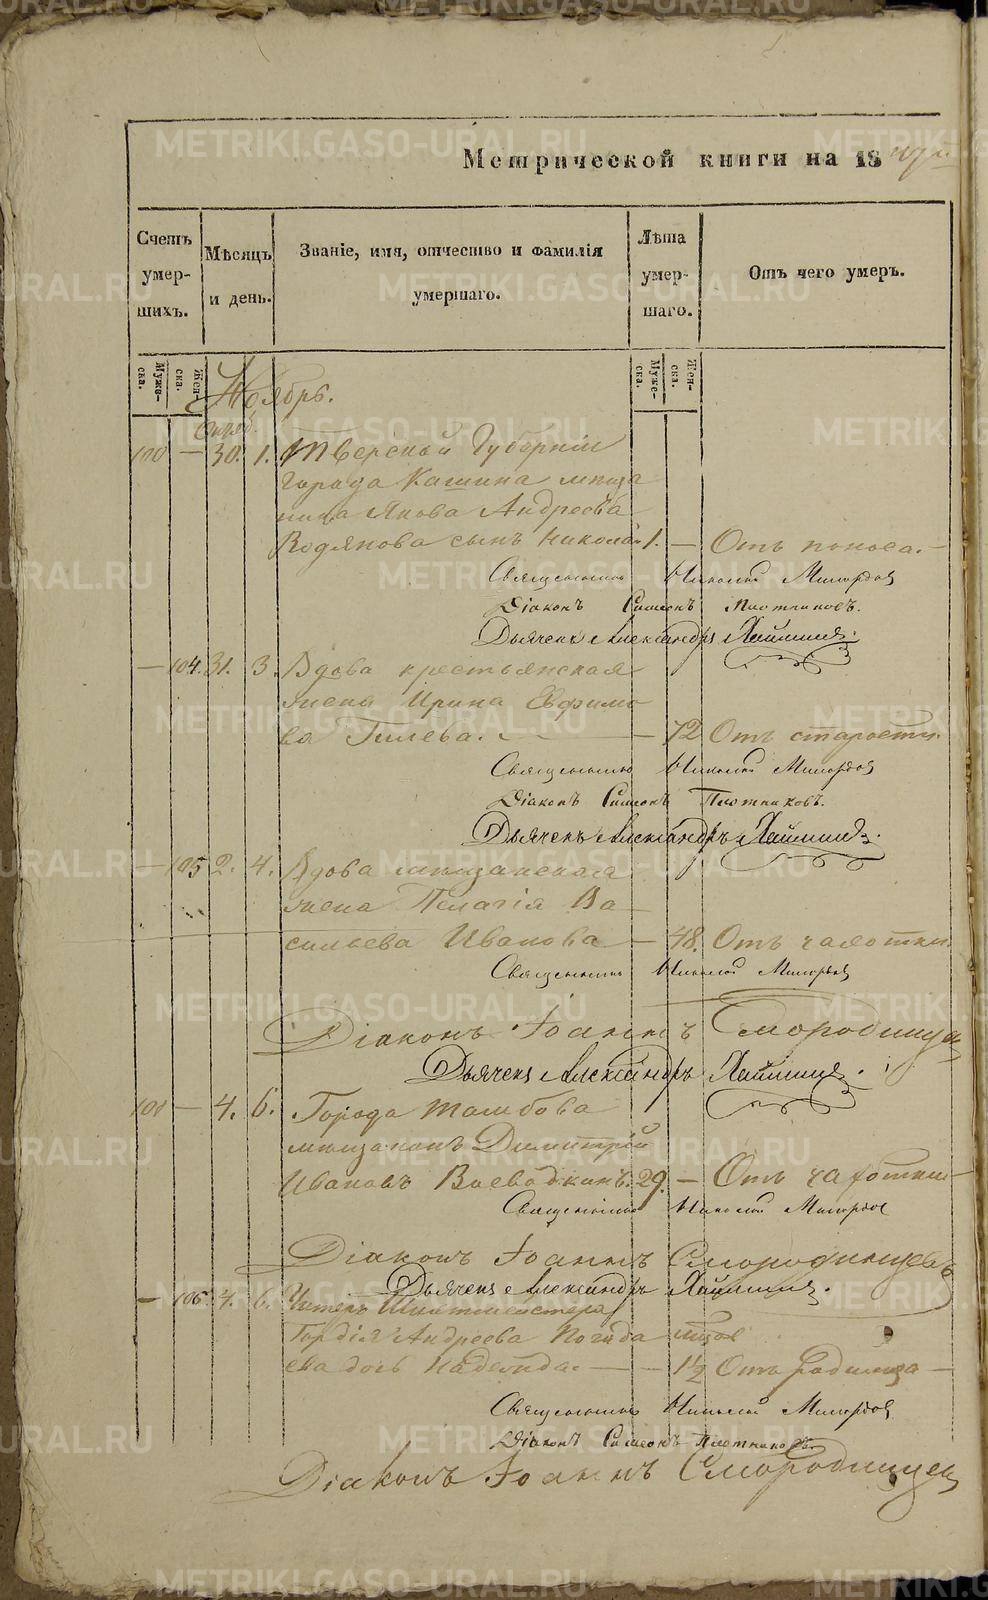 Метрической книги на 18
Счетъ умер- шихъ.
Мѣсяцъ и день.
Званіе, имя, отчество и фамилія умершаго.
Лѣта умер- шаго.
Отъ чего умеръ.
Муже- ска.
Жен- ска.
Муже- ска.
Жен- ска.
Ноябрь.
100 — 30. 1. Тверской Губерніи
города Кашина мѣща
нина Якова Андреева
Водянова сынъ Николай 1. — Отъ поноса. —
Священникъ Николай
Діаконъ Симеонъ Плотниковъ.
Дьячекъ Александръ
— 104. 31. 3. Вдова крестьянская
жена Ирина Ефимо
ва Гилева. — — 72 Отъ старости.
Священникъ Николай
Діаконъ Симеонъ Плотниковъ.
Дьячекъ Александръ
— 105 2. 4. Вдова мѣщанская
жена Пелагія Ва
сильева Иванова — 48. Отъ чахотки.
Священникъ Николай
Діаконъ Іоаннъ Смородинцевъ
Дьячекъ Александръ
101 — 4. 6. Города Тамбова
мѣщанинъ Димитрій
Ивановъ Воеводкинъ. 29. — Отъ чахотки —
Священникъ Николай
Діаконъ Іоаннъ Смородинцевъ
Дьячекъ Александръ
— 106 4. 6.
Гордія Андреева
ева дочь Надежда. — — 1½ Отъ родимца —
Священникъ Николай
Діаконъ Симеонъ Плотниковъ
Діаконъ Іоаннъ Смородинцевъ
METRIKI.GASO-URAL.RU